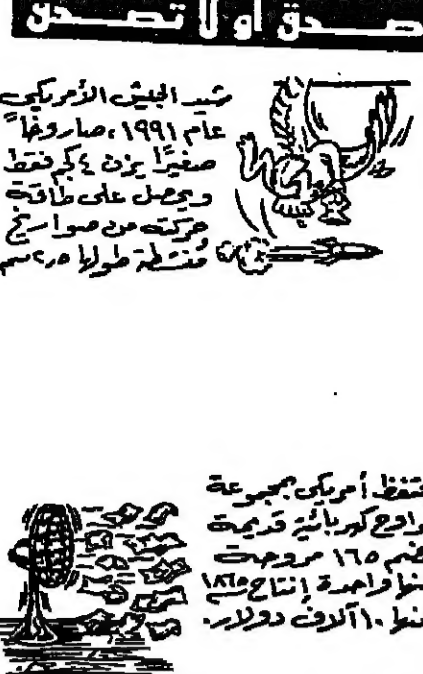 صدق أو لا تصدق
شيد الجيش الأمريكي
عام ١٩٩١، صاروخاً
صغيرًا يزن ٤ كجم فقط
ويحصل على طاقة
حركته من صواريخ
مُنشطة طولها ٢٫٥ سم
تفظ أمريكي بمجموعة
راوح كهربائية قديمة
ضم ١٦٥ مروحة
نها واحدة إنتاج
نها ١٠ آلاف دولار.